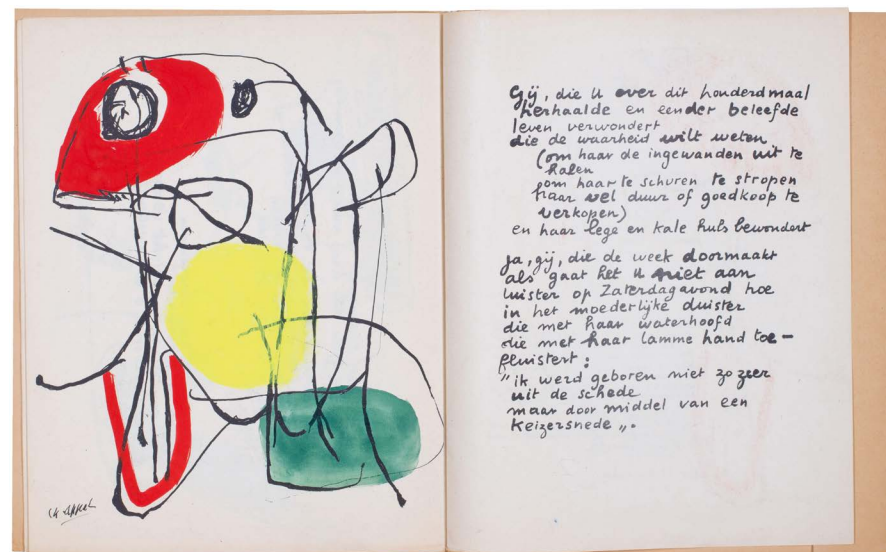 Gij, die U over dit honderdmaal
herhaalde en eender beleefde
leven verwondert
die de waarheid wilt weten
(om haar de ingewanden uit te
halen
om haar te schuren te stropen
haar vel duur of goedkoop te
verkopen)
en haar lege en kale huls bewondert
ja, gij, die de week doormaakt
als gaat het U niet aan
luister op Zaterdagavond hoe
in het moederlijke duister
die met haar waterhoofd
die met haar lamme hand toe-
fluistert:
"ik werd geboren niet zo zeer
uit de schede
maar door middel van een
keizersnede„.
ck. appel